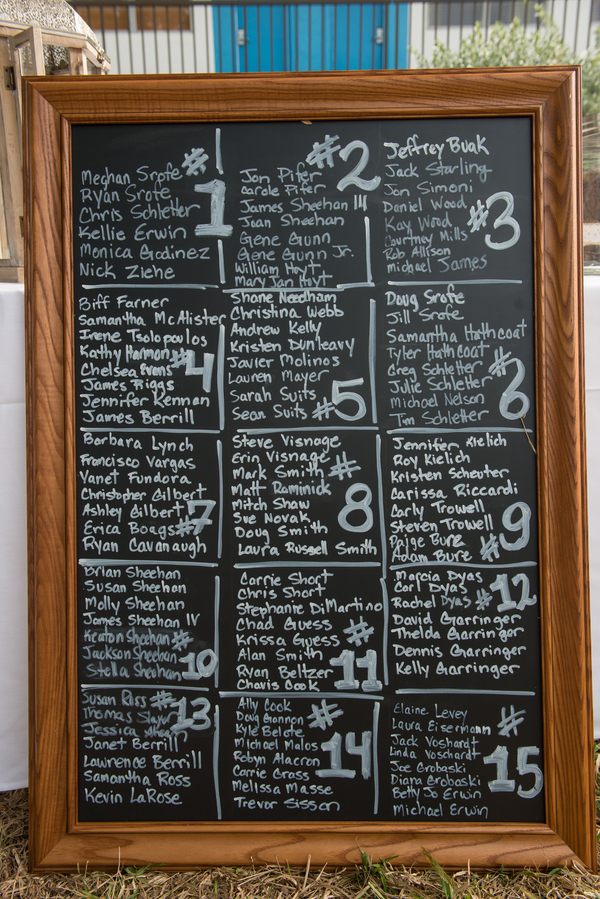 #1
Meghan Srofe
Ryan Srofe
Chris Schletter
Kellie Erwin
Monica Godinez
Nick Ziehe
#2
Jon Pifer
Carole Pifer
James Sheehan III
Joan Sheehan
Gene Gunn
Gene Gunn Jr.
William Hoyt
Mary Jan Hoyt
#3
Jeffrey Buak
Jack Starling
Jon Simoni
Daniel Wood
Kay Wood
Courtney Mills
Rob Allison
Michael James
#4
Biff Farner
Samantha McAlister
Irene Tsolopoulos
Kathy Harmon
Chelsea Evans
James Riggs
Jennifer Kennan
James Berrill
#5
Shane Needham
Christina Webb
Andrew Kelly
Kristen Dunleavy
Javier Molinos
Lauren Mayer
Sarah Suits
Sean Suits
#6
Doug Srofe
Jill Srofe
Samantha Hathcoat
Tyler Hathcoat
Greg Schletter
Julie Schletter
Michael Nelson
Tim Schletter
#7
Barbara Lynch
Francisco Vargas
Vanet Fundora
Christopher Gilbert
Ashley Gilbert
Erica Boags
Ryan Cavanaugh
#8
Steve Visnage
Erin Visnage
Mark Smith
Matt Raminick
Mitch Shaw
Sue Novak
Doug Smith
Laura Russell Smith
#9
Jennifer Kielich
Roy Kielich
Kristen Scheuter
Carissa Riccardi
Carly Trowell
Steven Trowell
Paige Bure
Adam Bure
#10
Brian Sheehan
Susan Sheehan
Molly Sheehan
James Sheehan IV
Keaton Sheehan
Jackson Sheehan
Stella Sheehan
#11
Carrie Short
Chris Short
Stephanie DiMartino
Chad Guess
Krissa Guess
Alan Smith
Ryan Beltzer
Chavis Cook
#12
Marcia Dyas
Carl Dyas
Rachel Dyas
David Garringer
Thelda Garringer
Dennis Garringer
Kelly Garringer
#13
Susan Ross
Thomas
Jessica
Janet Berrill
Lawrence Berrill
Samantha Ross
Kevin LaRose
#14
Ally Cook
Doug Gannon
Kyle Belote
Michael Malos
Robyn Alacron
Carrie Grass
Melissa Masse
Trevor Sisson
#15
Elaine Levey
Laura Eisermann
Jack Voshardt
Linda Voschardt
Joe Grobaski
Diana Grobaski
Betty Jo Erwin
Michael Erwin